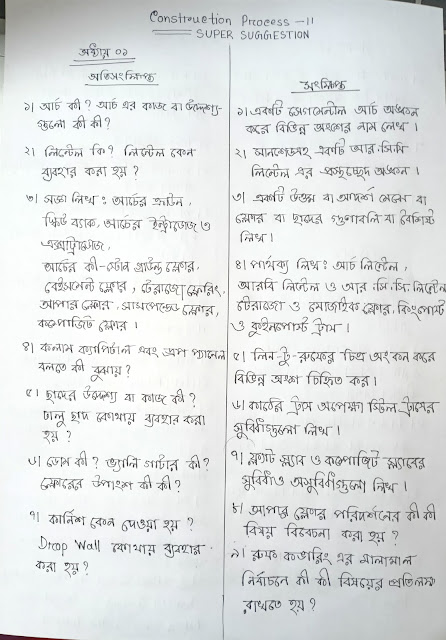 Construction Process -11
SUPER SUGGESTION
অধ্যায় ০১
অতিসংক্ষিপ্ত
১। আর্চ কী? আর্চ এর কাজ বা উদ্দেশ্য-
গুলো কী কী?
২। লিন্টেল কি? লিন্টেল কেন
ব্যবহার করা হয়?
৩। সংজ্ঞা লিখ: আর্চের ক্রাউন,
স্কিউ ব্যাক, আর্চের ইন্ট্রাডোজ ও
এক্সট্রাডোজ,
আর্চের কী-স্টোন গ্রাউন্ড ফ্লোর,
বেইসমেন্ট ফ্লোর, টেরাজো ফ্লোরিং,
আপার ফ্লোর, সাসপেন্ডেড ফ্লোর,
কম্পোজিট ফ্লোর।
৪। কলাম ক্যাপিটাল এবং ড্রপ প্যানেল
বলতে কী বুঝায়?
৫। ছাদের উদ্দেশ্য বা কাজ কী?
ঢালু ছাদ কোথায় ব্যবহার করা
হয়?
৬। ডোম কী? ভ্যালি গাটার কী?
ফ্লোরের উপাংশ কী কী?
৭। কার্নিশ কেন দেওয়া হয়?
Drop Wall কোথায় ব্যবহার
করা হয়?
সংক্ষিপ্ত
১। একটি সেগমেন্টাল আর্চ অঙ্কন
করে বিভিন্ন অংশের নাম লেখ।
২। সানশেডসহ একটি আর.সি.সি
লিন্টেল এর প্রস্থচ্ছেদ অঙ্কন।
৩। একটি উত্তম বা আদর্শ মেঝে বা
ফ্লোর বা ছাদের গুণাবলি বা বৈশিষ্ট্য
লিখ।
৪। পার্থক্য লিখ: আর্চ লিন্টেল,
আরবি লিন্টেল ও আর.সি.সি. লিন্টেল
টেরাজো ও মোজাইক ফ্লোর, কিংপোস্ট
ও কুইনপোস্ট ট্রাস।
৫। লিন-টু-রুফের চিত্র অংকন করে
বিভিন্ন অংশ চিহ্নিত কর।
৬। কাঠের ট্রাস অপেক্ষা স্টিল ট্রাসের
সুবিধাগুলো লিখ।
৭। ফ্ল্যাট স্ল্যাব ও কম্পোজিট স্ল্যাবের
সুবিধা ও অসুবিধাগুলো লিখ।
৮। আপার ফ্লোর পরিদর্শনের কী কী
বিষয় বিবেচনা করা হয়?
৯। রুফ কভারিং এর মালামাল
নির্বাচনে কী কী বিষয়ের প্রতি লক্ষ্য
রাখতে হয়?